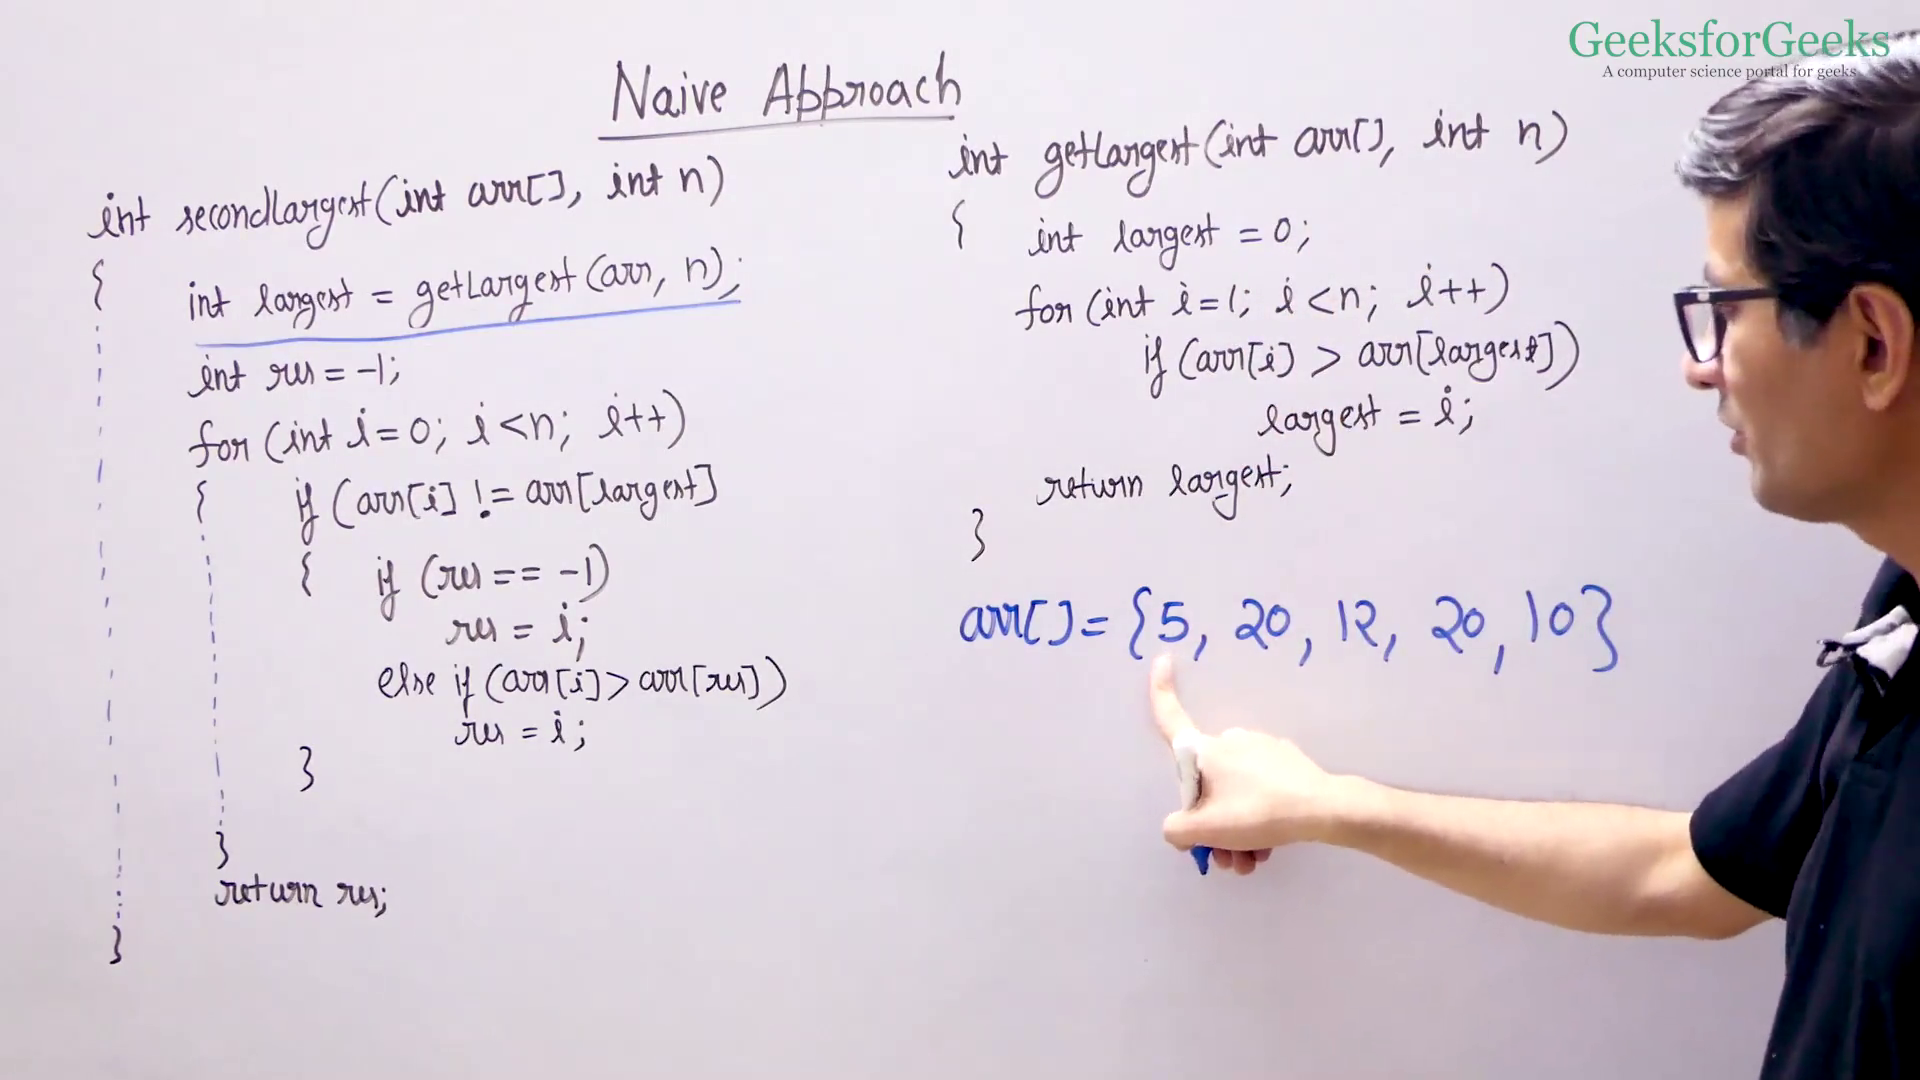 GeeksforGeeks
A computer science portal for geeks
Naive Approach
int secondLargest(int arr[], int n)
{
int largest = getLargest(arr, n);
int res = -1;
for (int i=0; i<n; i++)
{ if (arr[i] != arr[largest]
{ if (res == -1)
res = i;
else if (arr[i] > arr[res])
res = i;
}
}
return res;
}
int getLargest(int arr[], int n)
{ int largest = 0;
for (int i=1; i<n; i++)
if (arr[i] > arr[largest])
largest = i;
return largest;
}
arr[] = {5, 20, 12, 20, 10}